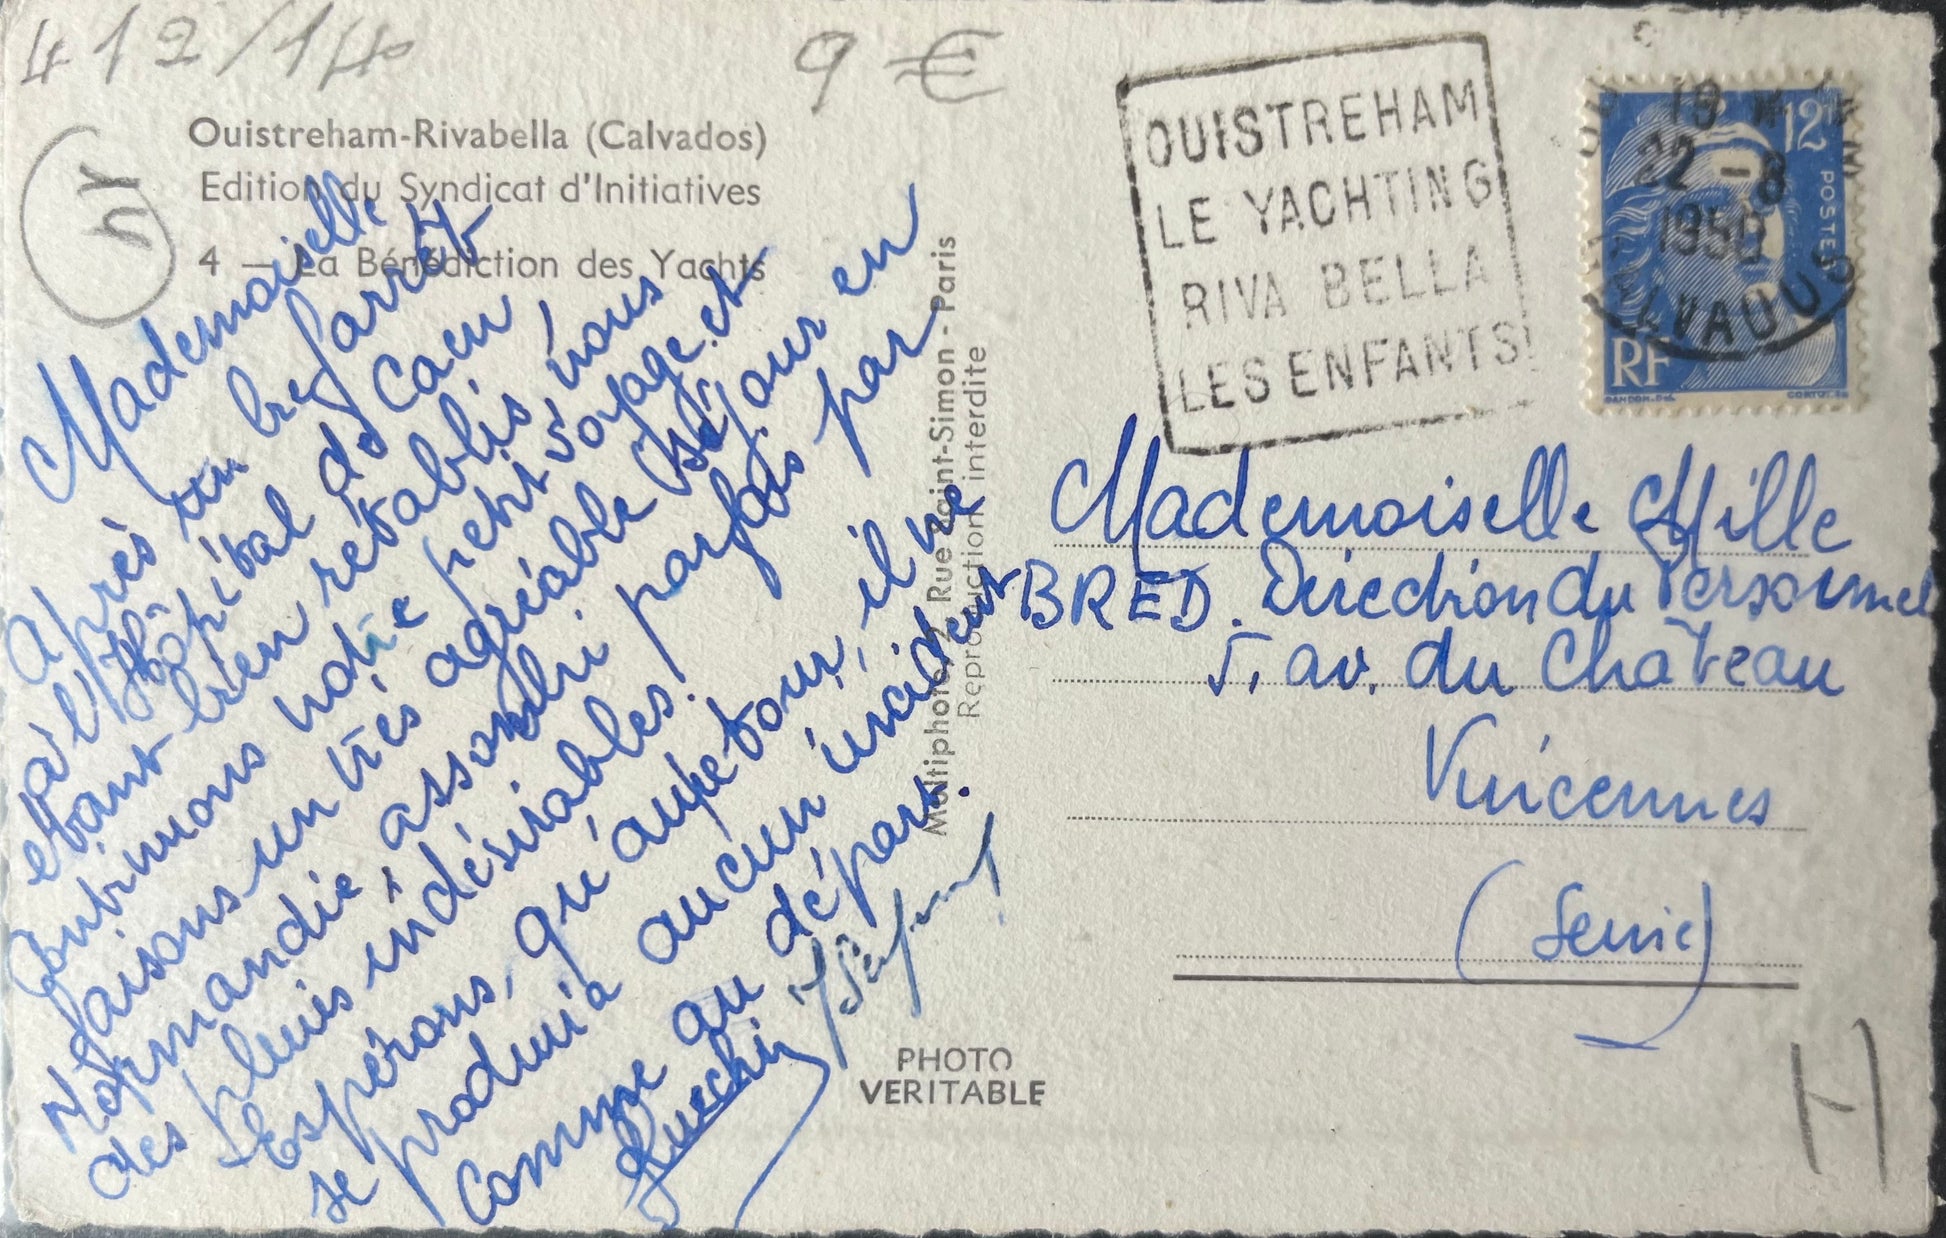 412/14
9 €
Ouistreham-Rivabella (Calvados)
Edition du Syndicat d'Initiatives
4 — La Bénédiction des Yachts
Mademoiselle
après un bref arrêt
à l'Hôpital de Caen
étant bien rétablis nous
continuons notre petit voyage et
faisons un très agréable séjour en
Normandie assombri parfois par
des pluies indésirables.
Espérons, qu'au retour, il ne
se produira aucun incident
comme au départ.
Multiphoto, 2, Rue Saint-Simon - Paris
Reproduction interdite
PHOTO
VERITABLE
OUISTREHAM
LE YACHTING
RIVA BELLA
LES ENFANTS
19 H
22 - 8
1950
CALVADOS
12F
POSTES
RF
GANDON.DEL
CORTOT.SC
Mademoiselle Mille
BRED. Direction du Personnel
5, av. du Château
Vincennes
(Seine)
H